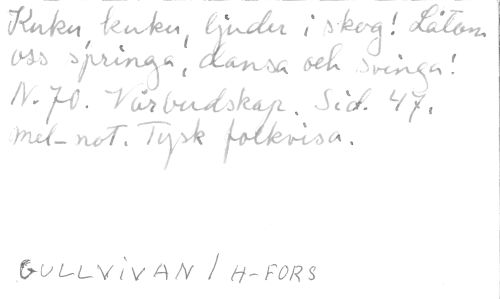 Kuku, kuku, ljuder i skog! Låtom
oss springa, dansa och svinga!
N. 70. Vårbudskap. Sid. 47.
mel-not. Tysk folkvisa.
GULLVIVAN / H-FORS